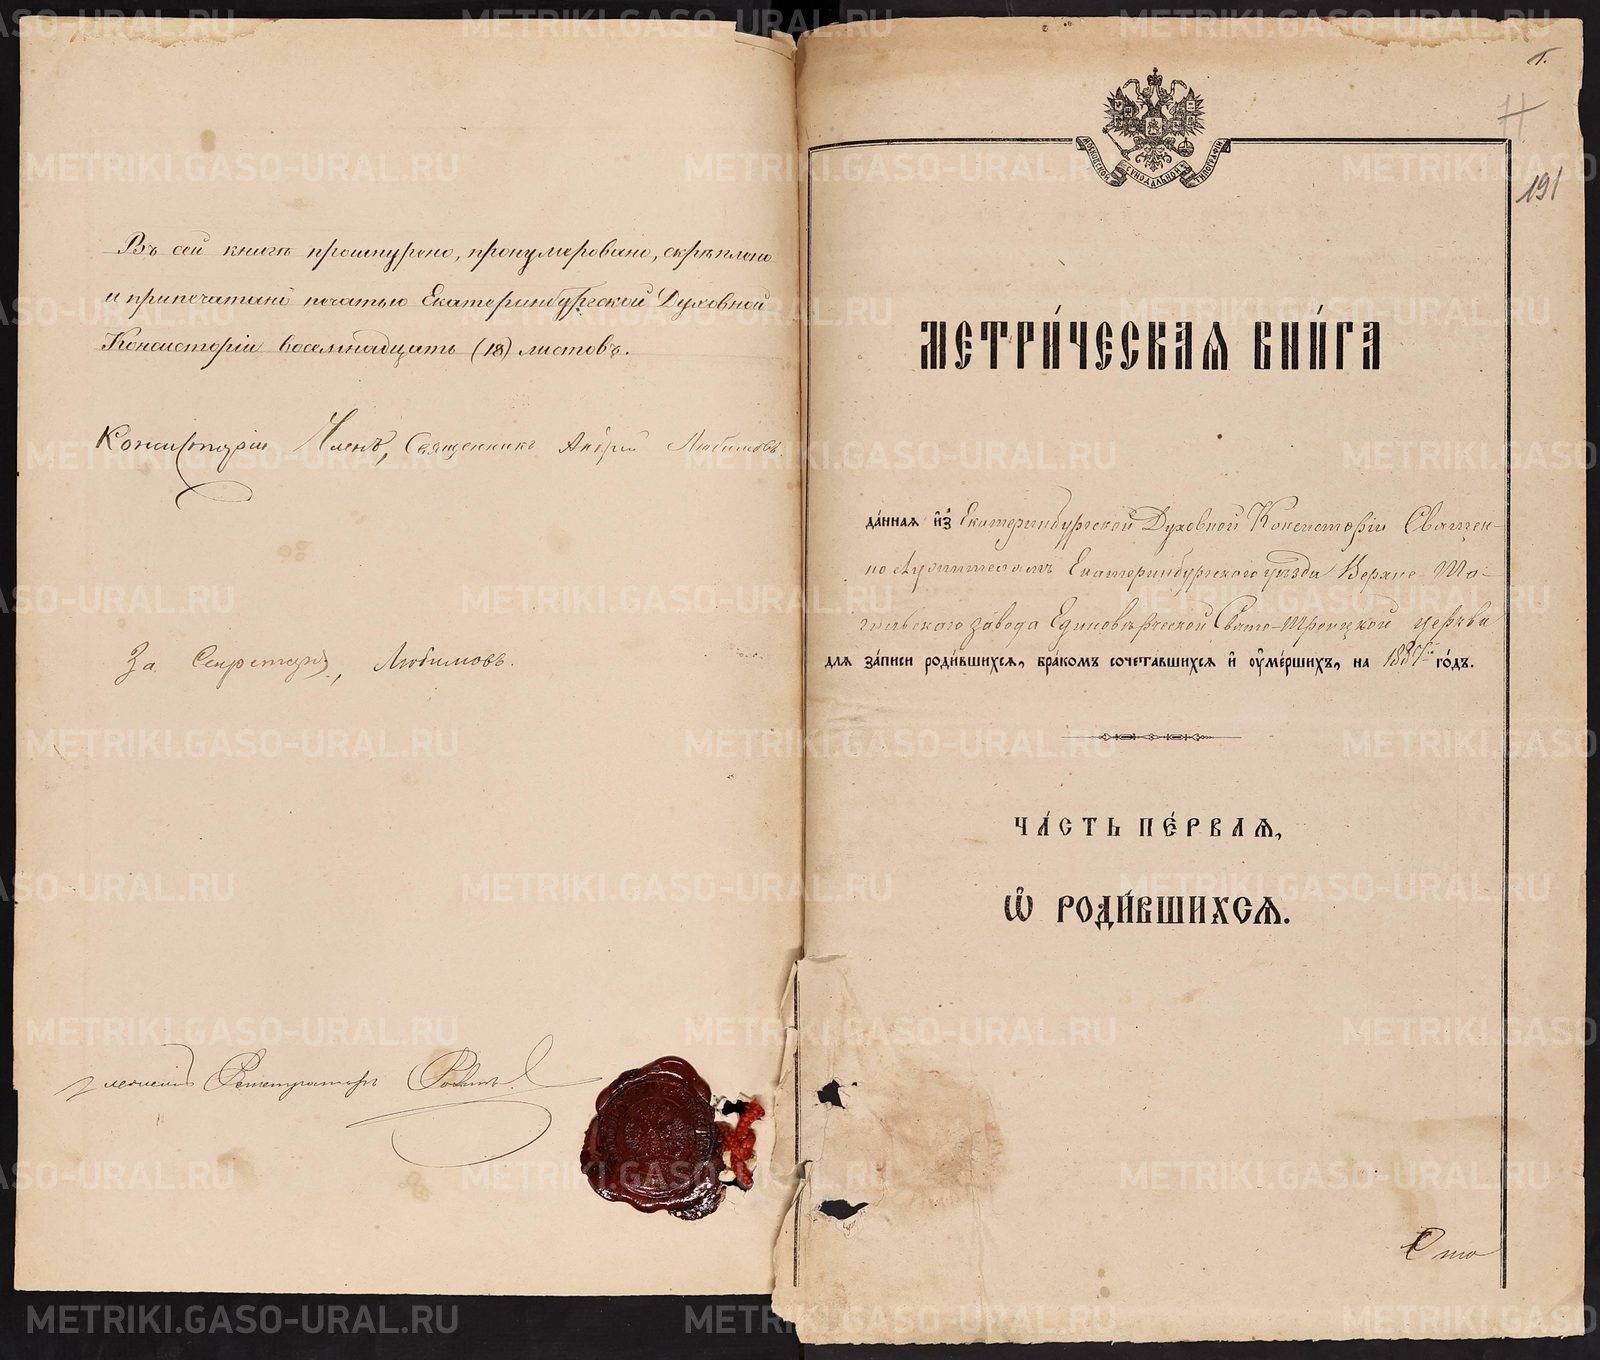 Въ сей книгѣ прошнурено, пронумеровано, скрѣплено
и припечатано печатью Екатеринбургской Духовной
Консисторіи восемнадцать (18) листовъ.
Консисторіи Членъ, Священникъ Андрей Любимовъ.
За Секретаря, Любимовъ.
Регистраторъ
МОСКОВСКОЙ СѴНОДАЛЬНОЙ ТИПОГРАФІИ
191
МЕТРИ́ЧЕСКАЯ КНИ́ГА
да́нная и҆з̾ Екатеринбургской Духовной Консисторіи Священ-
но служителямъ Екатеринбургскаго уѣзда Верхне Та-
гильскаго завода Единовѣрческой Свято-Троицкой церкви
для за́писи роди́вшихся, бра́комъ сочета́вшихся и҆ ᲂу҆ме́ршихъ, на 188 го́дъ.
ЧА́СТЬ ПЕ́РВАЯ,
Ѽ РОДИ́ВШИХСЯ.
Сто
METRIKI.GASO-URAL.RU